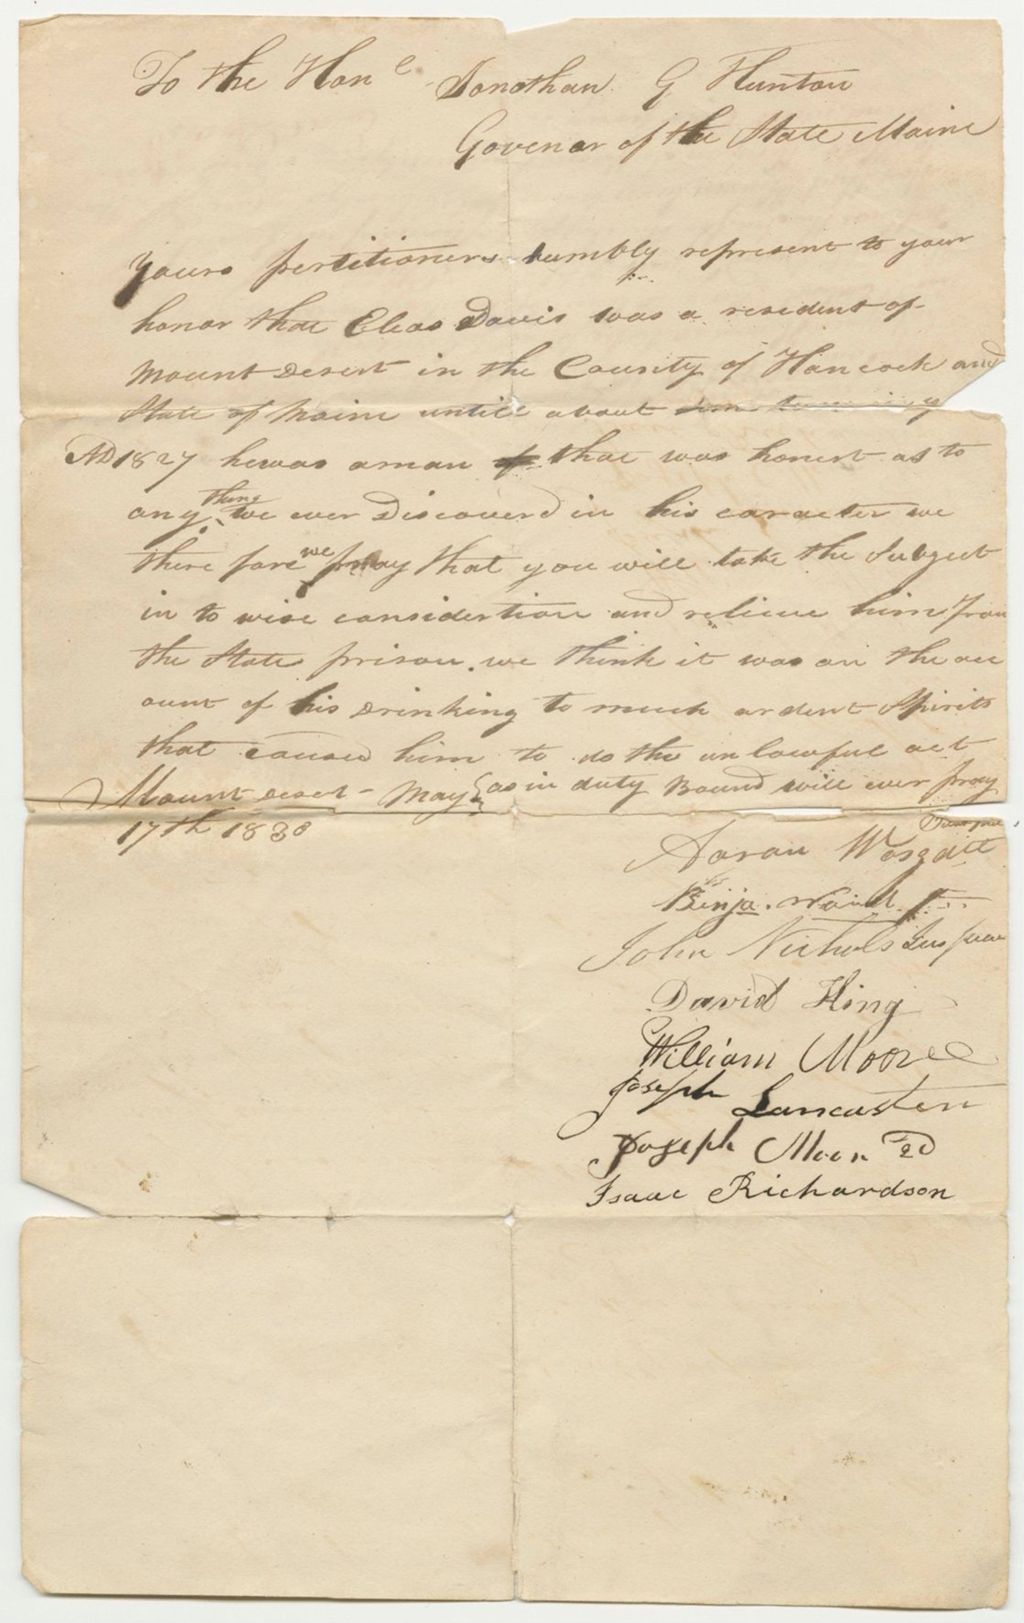 To the Hon.e Jonathan G Hunton
Govenor of the State Maine
yours pertitioners humbly represent to your
honor that Elias Davis was a resident of
Mount Desert in the County of Hancock and
State of Maine untill about
AD 1827 he was a man that was honest as to
any thing we ever Discoverd in his caracter we
there fore we pray that you will take the Subject
in to wise considertion and relieve him from
the State prison. we think it was on the acc
ount of his Drinking to much ardent Spirits
that caused him to do the un lawful act
Mount desert - May as in duty Bound will ever pray
17th 1830
Aaron Wasgatt
Benja. Ward
John Nichols
David King
William Moore
Joseph Lancaster
Joseph Moor 2D
Isaac Richardson